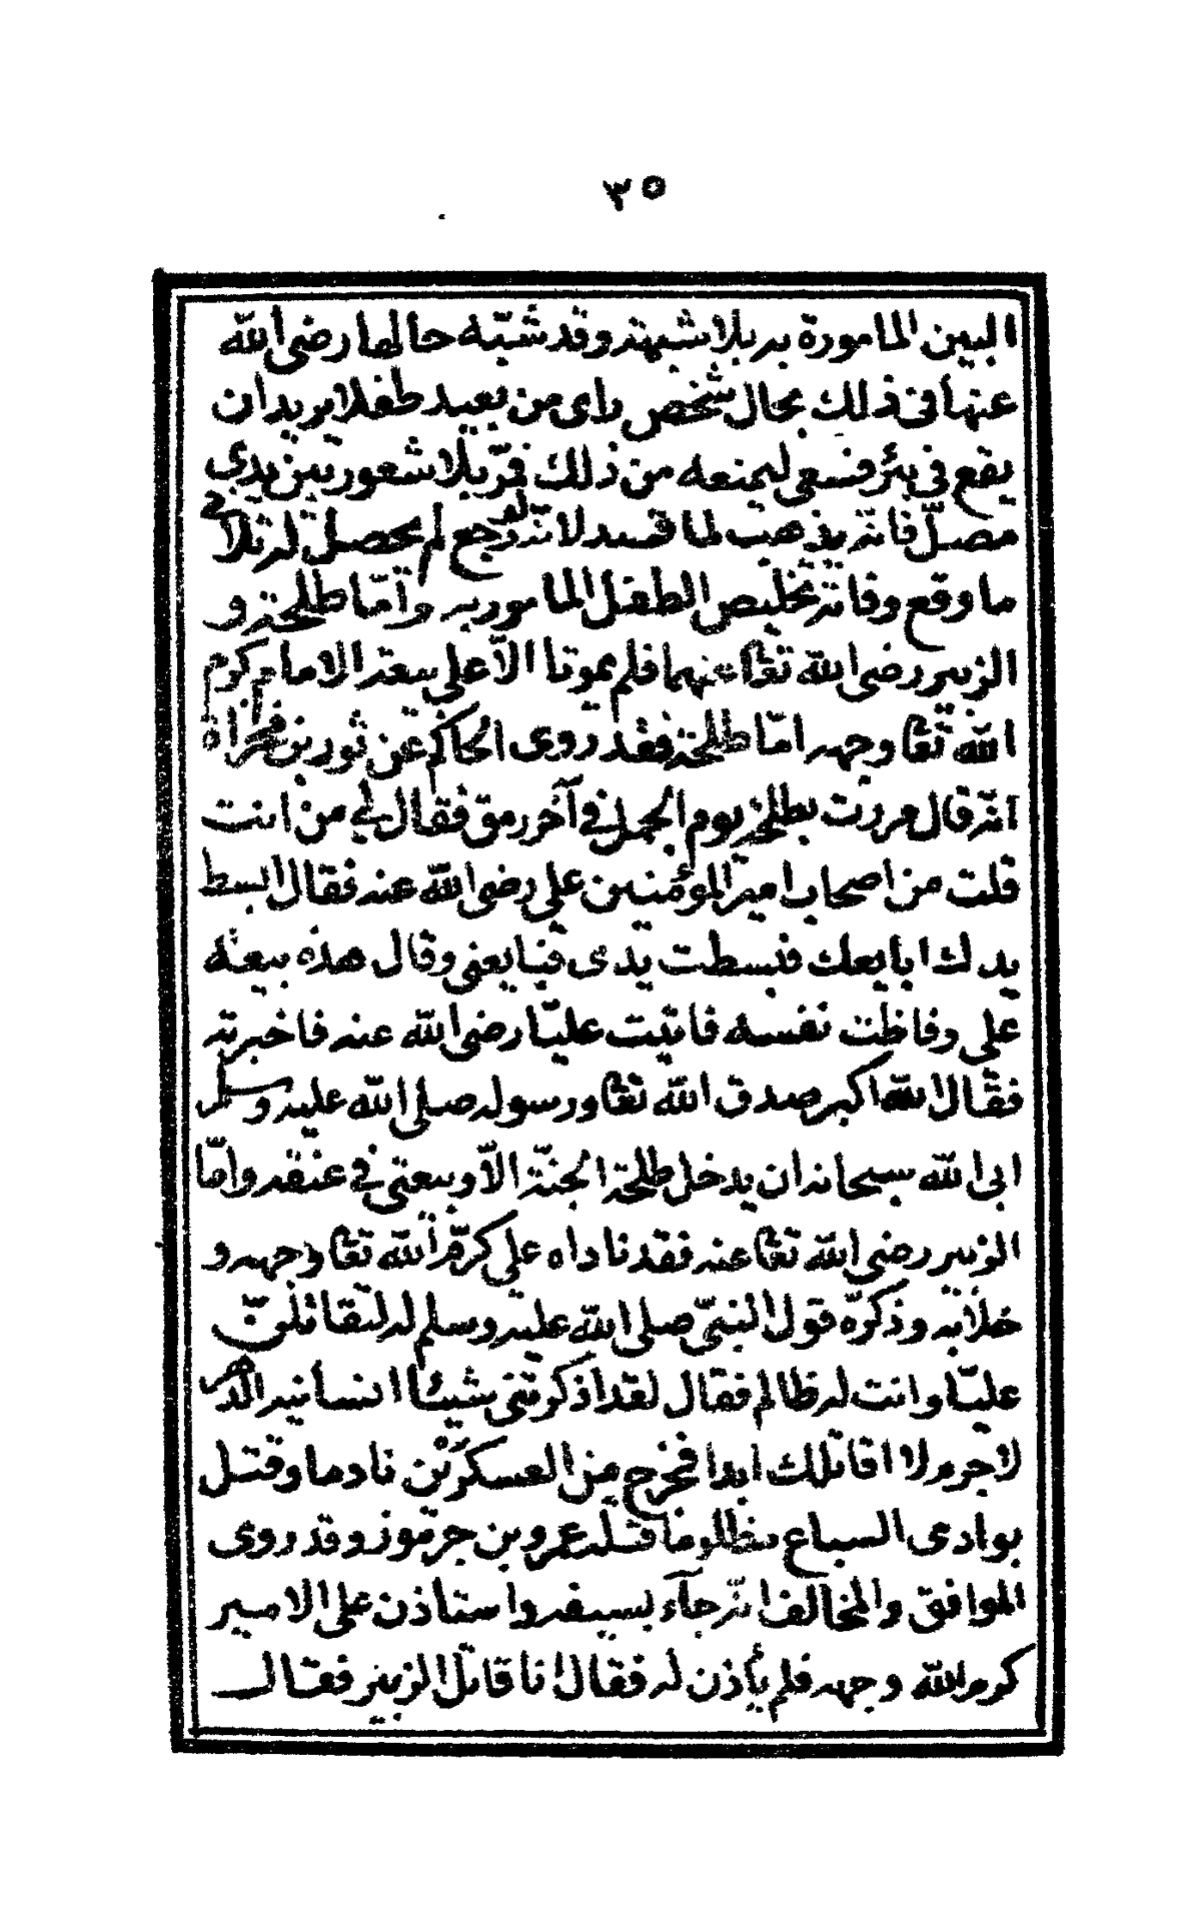 ٣٥
البين المامورة به بلا شبهة وقد شبه حالها رضى الله
عنها فى ذلك بحال شخص راى من بعيد طفلا يريد ان
يقع فى بئر فسعى ليمنعه من ذلك فمرّ بلا شعور بين يدى
مصلّ فانّه يذهب لما قصد لانّه لو رجع لم يحصل له تلافى
ما وقع وفاته تخليص الطفل المامور به وامّا طلحة و
الزبير رضى الله تعا عنهما فلم يموتا الاّ على بيعة الامام كرم
الله تعا وجهه امّا طلحة فقد روى الحاكم عن ثور بن مجزاة
انّه قال مررت بطلحة يوم الجمل فى آخر رمق فقال لى من انت
قلت من اصحاب امير المؤمنين على رضى الله عنه فقال ابسط
يدك ابايعك فبسطت يدى فبايعنى وقال هذه بيعة
على وفاظت نفسه فاتيت عليّا رضى الله عنه فاخبرته
فقال الله اكبر صدق الله تعا ورسوله صلى الله عليه وسلم
ابى الله سبحانه ان يدخل طلحة الجنّة الاّ وبيعتى فى عنقه وامّا
الزبير رضى الله تعا عنه فقد ناداه على كرّم الله تعا وجهه و
خلا به وذكّره قول النبىّ صلى الله عليه وسلم له لتقاتلنّ
عليّا وانت له ظالم فقال لقد اذكرتنى شيئا انسانيه الدهر
لا جرم لا اقاتلك ابدا فخرج من العسكرين نادما وقتل
بوادى السباع مظلوما قتله عمرو بن جرموز وقد روى
الموافق والمخالف انّه جآء بسيفه واستاذن على الامير
كرم الله وجهه فلم يأذن له فقال انا قاتل الزبير فقال